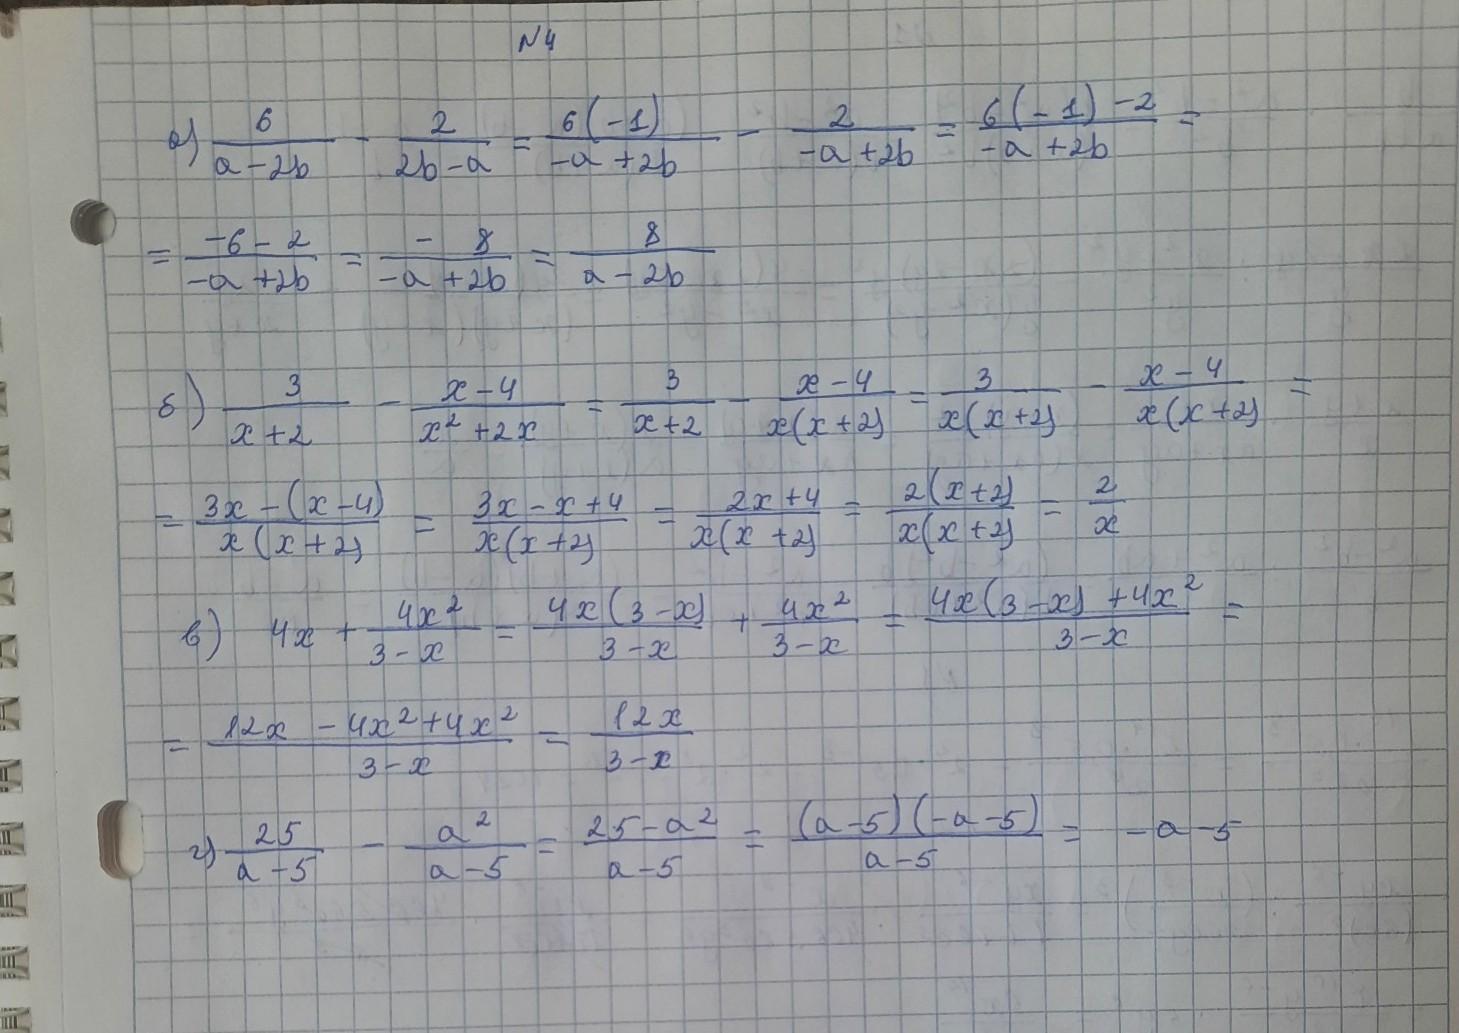 N4
а) \frac{6}{a-2b} - \frac{2}{2b-a} = \frac{6(-1)}{-a+2b} - \frac{2}{-a+2b} = \frac{6(-1)-2}{-a+2b} =
= \frac{-6-2}{-a+2b} = \frac{-8}{-a+2b} = \frac{8}{a-2b}
б) \frac{3}{x+2} - \frac{x-4}{x^2+2x} = \frac{3}{x+2} - \frac{x-4}{x(x+2)} = \frac{3}{x(x+2)} - \frac{x-4}{x(x+2)} =
= \frac{3x-(x-4)}{x(x+2)} = \frac{3x-x+4}{x(x+2)} = \frac{2x+4}{x(x+2)} = \frac{2(x+2)}{x(x+2)} = \frac{2}{x}
в) 4x + \frac{4x^2}{3-x} = \frac{4x(3-x)}{3-x} + \frac{4x^2}{3-x} = \frac{4x(3-x)+4x^2}{3-x} =
= \frac{12x-4x^2+4x^2}{3-x} = \frac{12x}{3-x}
г) \frac{25}{a-5} - \frac{a^2}{a-5} = \frac{25-a^2}{a-5} = \frac{(a-5)(-a-5)}{a-5} = -a-5